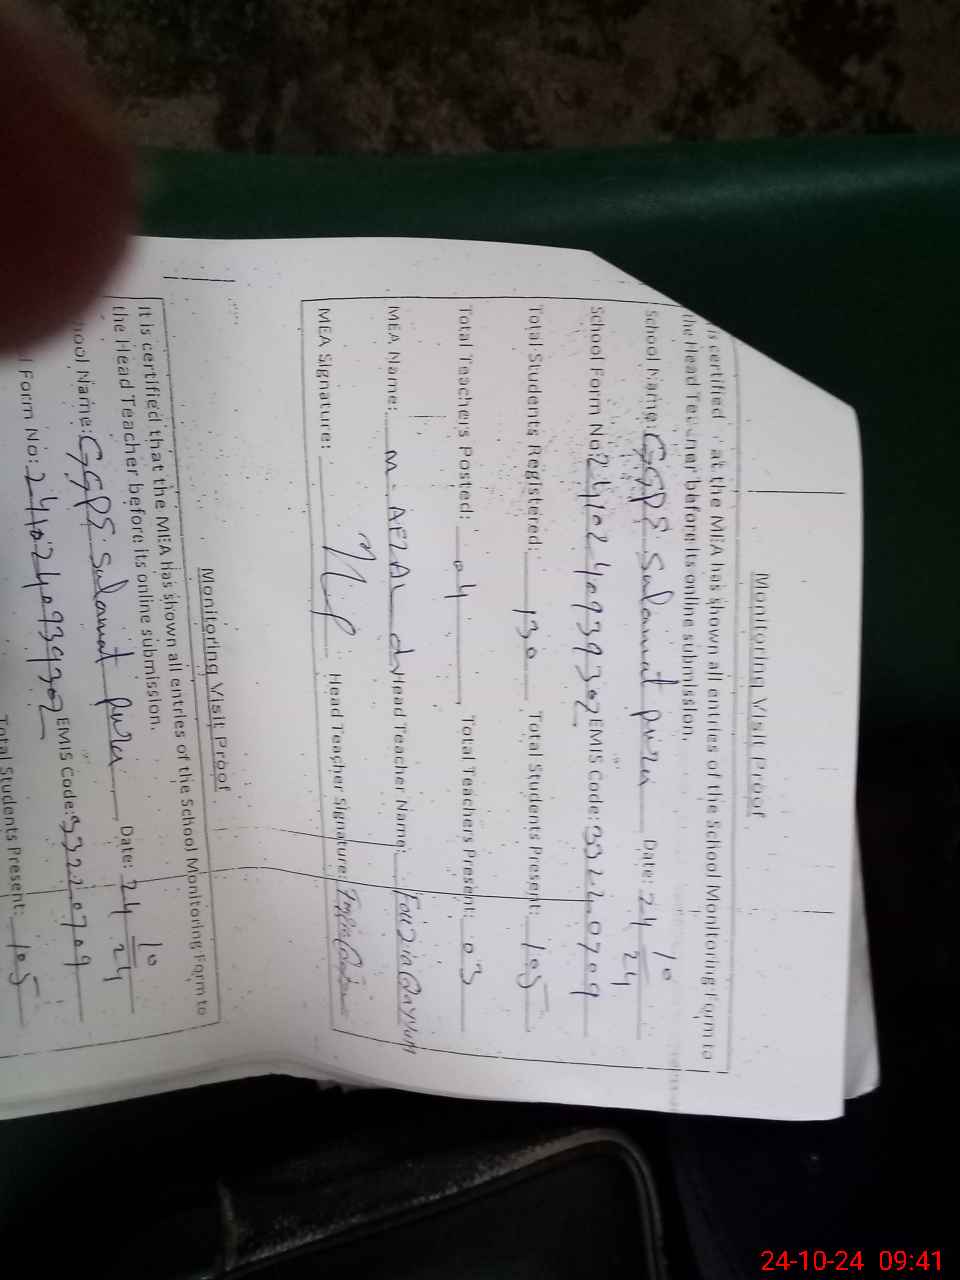 Monitoring Visit Proof
is certified at the MEA has shown all entries of the School Monitoring Form to
the Head Teacher before its online submission.
School Name: GGPS Salamat pura Date: 24 10 24
School Form No: 2410240939302 EMIS Code: 33220709
Total Students Registered: 130 Total Students Present: 105
Total Teachers Posted: 04 Total Teachers Present: 03
MEA Name: M. AFZAL Head Teacher Name: Fouzia Qayyum
MEA Signature: Head Teacher Signature:
Monitoring Visit Proof
It is certified that the MEA has shown all entries of the School Monitoring Form to
the Head Teacher before its online submission.
hool Name: GGPS Salamat pura Date: 24 10 24
l Form No: 2410240939302 EMIS Code: 33220709
Total Students Present: 105
24-10-24 09:41